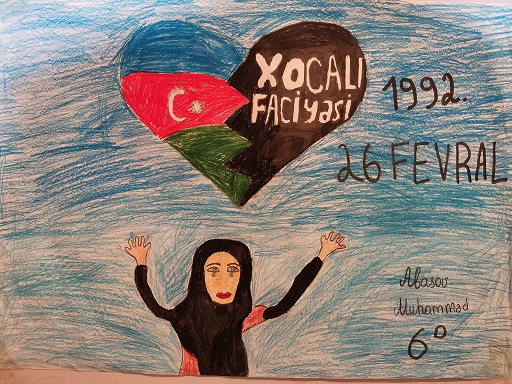 XOCALI
FACİYəSİ
1992.
26 FEVRAL
Abasov
Muhammad
6D